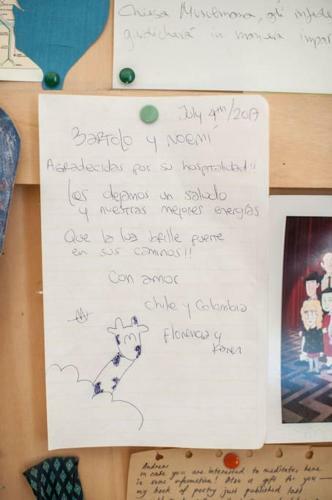 Chiesa Musulmana, gli infede
giudicherà in maniera impar
July 4th/2017
Bartolo y Noemí
Agradecidas por su hospitalidad!!
Les dejamos un saludo
y nuestras mejores energías
Que la luz brille fuerte
en sus caminos!!
Con amor
Chile y Colombia
Florencia y
Karen
Andrew
in case you are interested to meditate, here
is some information! Also a gift for you —
my book of poetry just published last